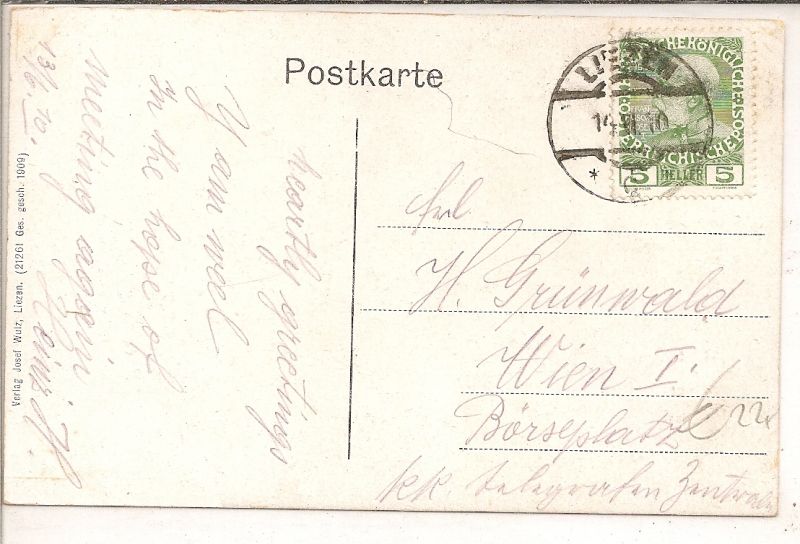 Postkarte
LIEZEN
KAISERLICHE KÖNIGLICHE
ÖSTERREICHISCHE POST
5 HELLER 5
hearty greetings
Y am well
in the hope of
meeting again
Heinz H.
13/10.
Frl
H. Grünwald
Wien I.
Börseplatz
kk. Telegrafen Zentrale
22
Verlag Josef Wulz, Liezen. (21261 Ges. gesch. 1909)